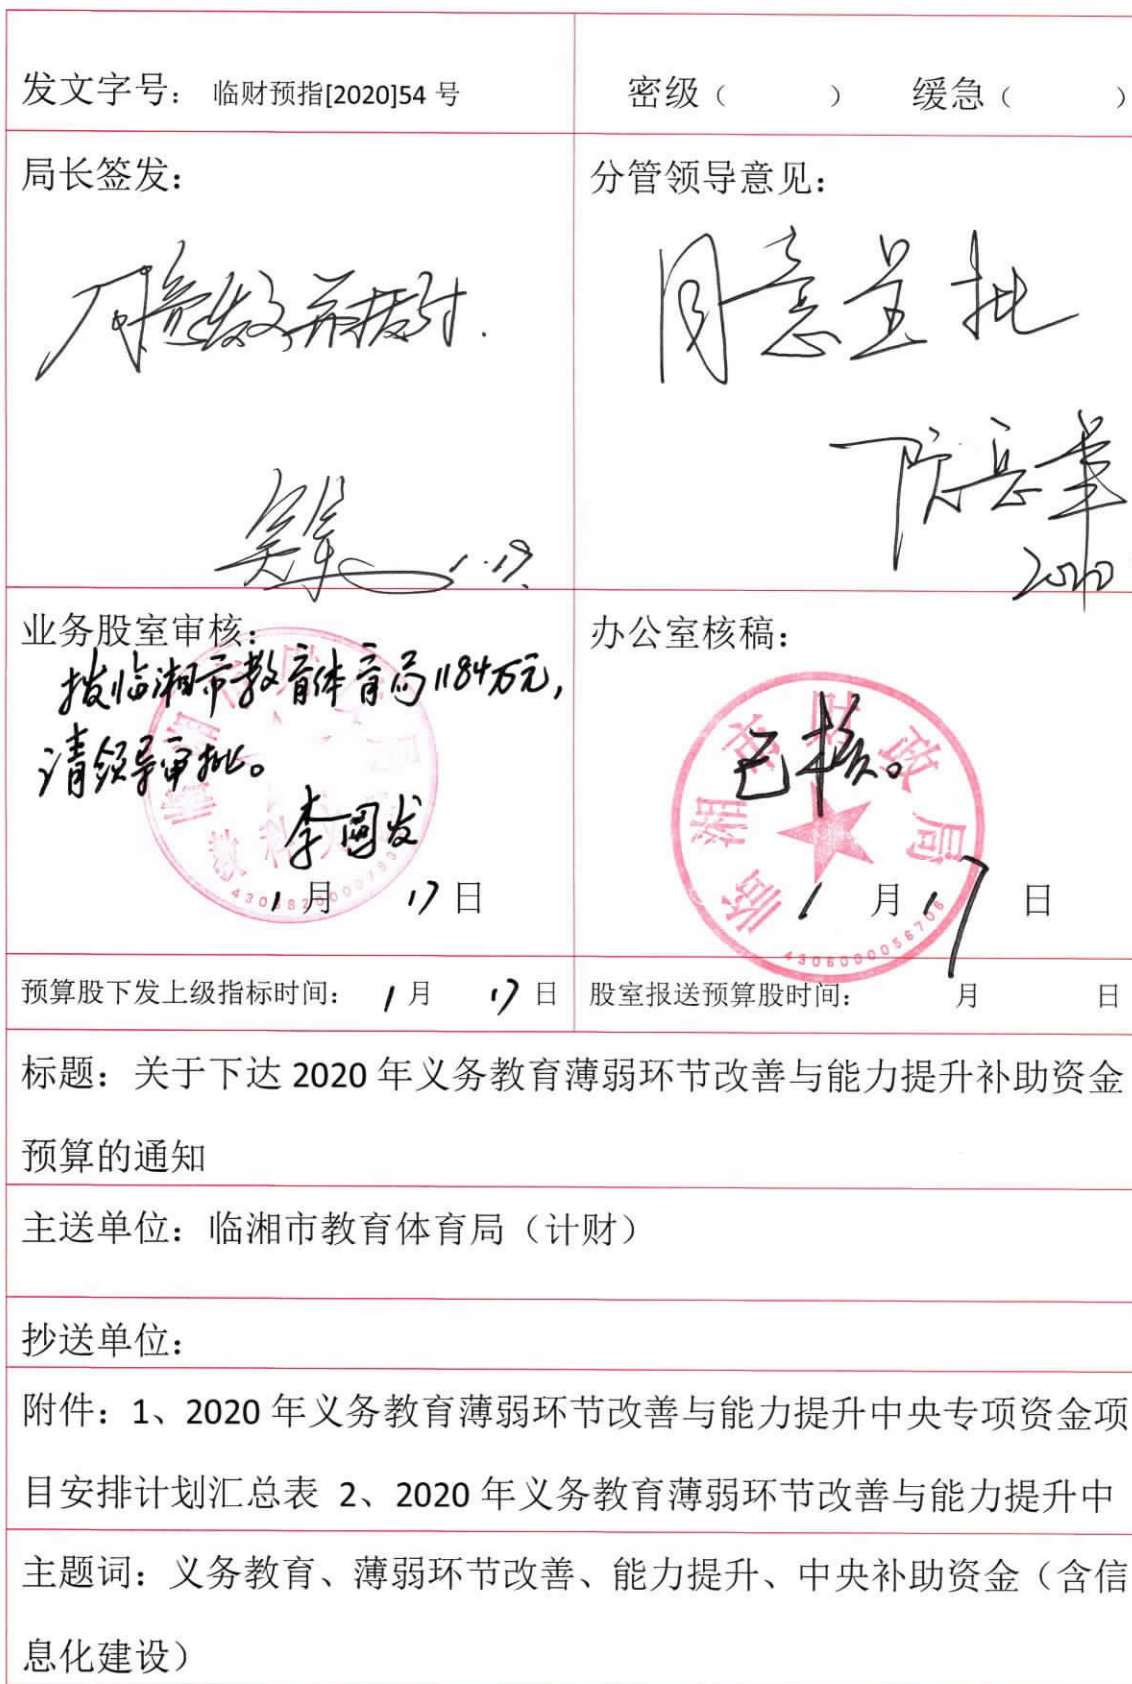 发文字号： 临财预指[2020]54 号
密级（ ） 缓急（ ）
局长签发：
同意发文并拨付.
1.17.
分管领导意见：
同意呈批
2020
业务股室审核：
拨临湘市教育体育局1184万元，
请领导审批。
李国发
1月 17日
办公室核稿：
已核。
临湘市财政局
4306000056706
1 月 17 日
预算股下发上级指标时间： 1月 17日
股室报送预算股时间： 月 日
标题：关于下达 2020 年义务教育薄弱环节改善与能力提升补助资金
预算的通知
主送单位：临湘市教育体育局（计财）
抄送单位：
附件：1、2020 年义务教育薄弱环节改善与能力提升中央专项资金项
目安排计划汇总表 2、2020 年义务教育薄弱环节改善与能力提升中
主题词：义务教育、薄弱环节改善、能力提升、中央补助资金（含信
息化建设）